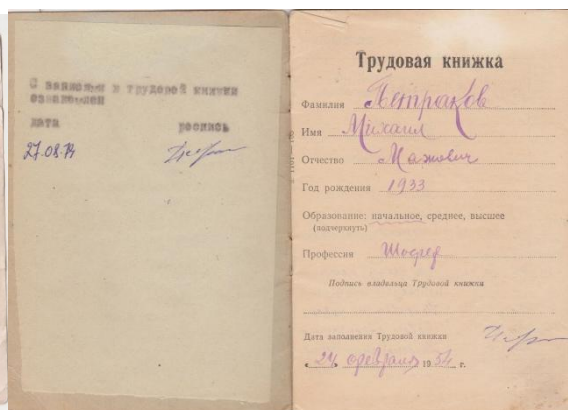 С записями в трудовой книжке
ознакомлен
дата роспись
27.08.74
Трудовая книжка
Фамилия Петраков
Имя Михаил
Отчество
Год рождения 1933
Образование: начальное, среднее, высшее
(подчеркнуть)
Профессия Шофер
Подпись владельца Трудовой книжки
Дата заполнения Трудовой книжки
„24 февраля 1954 г.